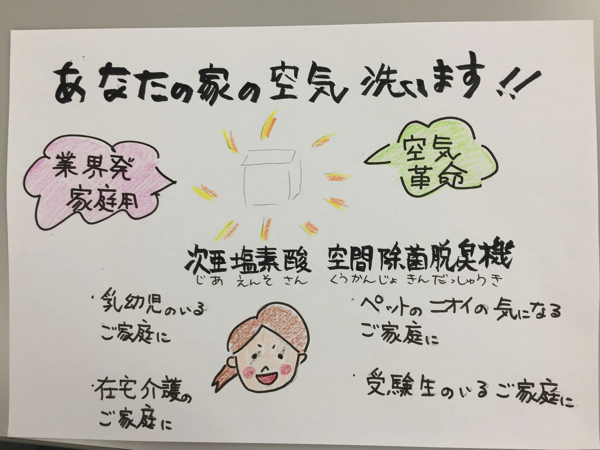 あなたの家の空気洗います!!
業界発
家庭用
空気
革命
次亜塩素酸 空間除菌脱臭機
じあえんそさん くうかんじょきんだっしゅうき
・乳幼児のいる
ご家庭に
・ペットのニオイの気になる
ご家庭に
・在宅介護の
ご家庭に
・受験生のいるご家庭に